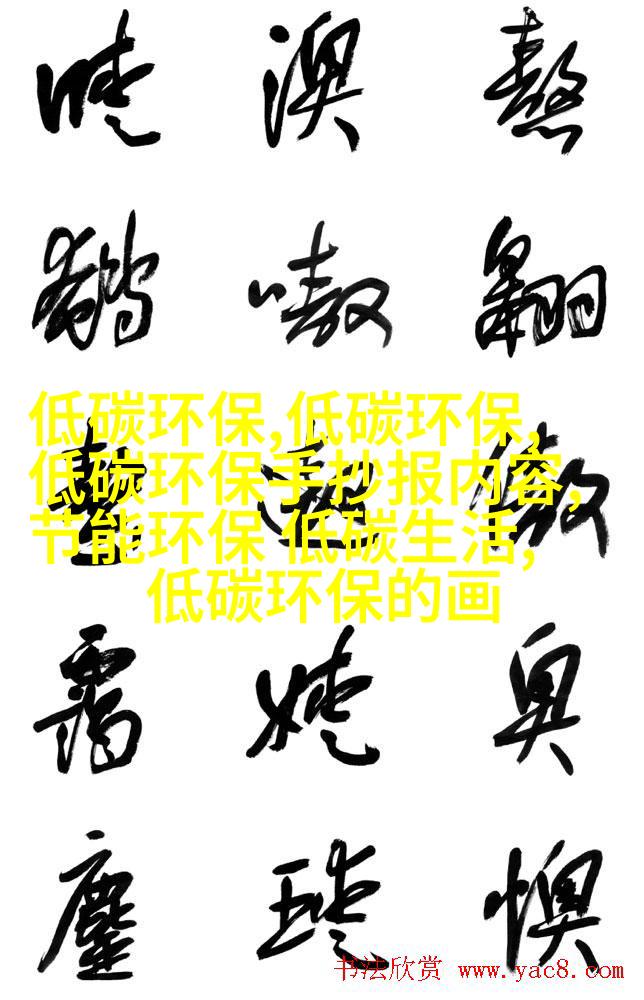 澳 熬
嗷 翱
遨 傲
低碳环保,低碳环保,
低碳环保手抄报内容,
节能环保 低碳生活,
低碳环保的画
霭 嫒 奥
鏖 瑷 懊
书法欣赏 www.yac8.com